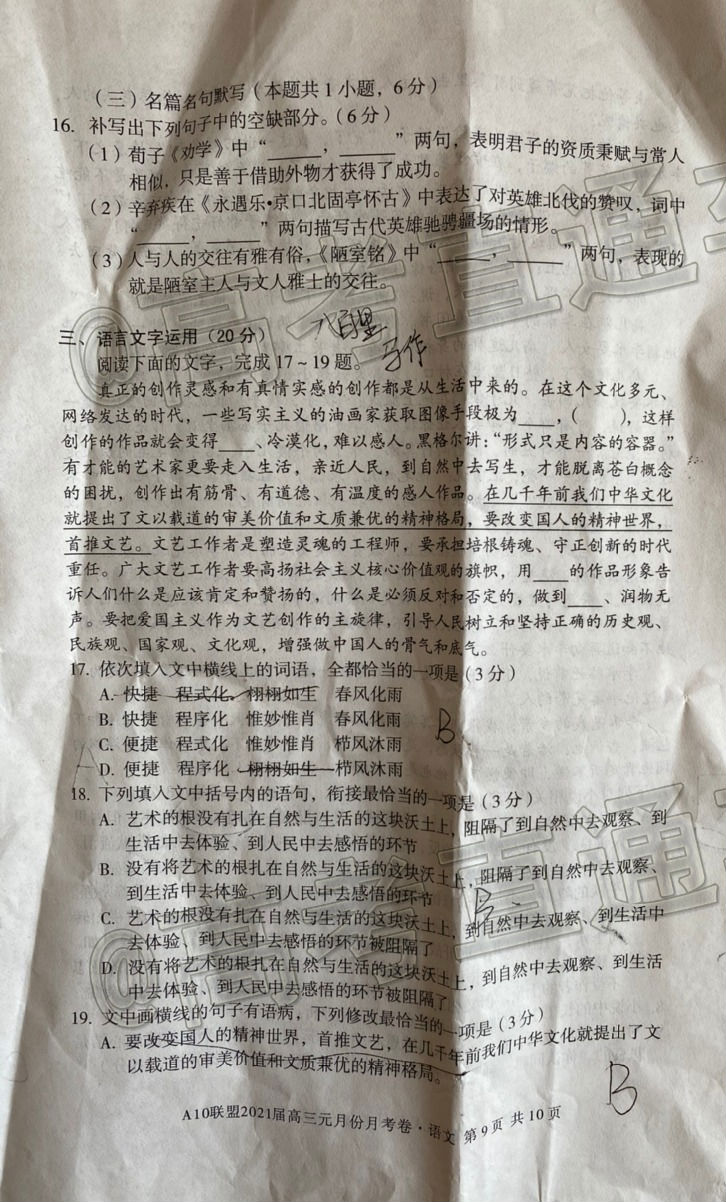 （三）名篇名句默写（本题共1小题，6分）
16. 补写出下列句子中的空缺部分。（6分）
（1）荀子《劝学》中“_____，_____”两句，表明君子的资质秉赋与常人
相似，只是善于借助外物才获得了成功。
（2）辛弃疾在《永遇乐·京口北固亭怀古》中表达了对英雄北伐的赞叹，词中
“_____，_____”两句描写古代英雄驰骋疆场的情形。
（3）人与人的交往有雅有俗，《陋室铭》中“_____，_____”两句，表现的
就是陋室主人与文人雅士的交往。
八百里
写作
三、语言文字运用（20分）
阅读下面的文字，完成17～19题。
真正的创作灵感和有真情实感的创作都是从生活中来的。在这个文化多元、
网络发达的时代，一些写实主义的油画家获取图像手段极为____，（ ），这样
创作的作品就会变得____、冷漠化，难以感人。黑格尔讲：“形式只是内容的容器。”
有才能的艺术家更要走入生活，亲近人民，到自然中去写生，才能脱离苍白概念
的困扰，创作出有筋骨、有道德、有温度的感人作品。在几千年前我们中华文化
就提出了文以载道的审美价值和文质兼优的精神格局，要改变国人的精神世界，
首推文艺。文艺工作者是塑造灵魂的工程师，要承担培根铸魂、守正创新的时代
重任。广大文艺工作者要高扬社会主义核心价值观的旗帜，用____的作品形象告
诉人们什么是应该肯定和赞扬的，什么是必须反对和否定的，做到____、润物无
声。要把爱国主义作为文艺创作的主旋律，引导人民树立和坚持正确的历史观、
民族观、国家观、文化观，增强做中国人的骨气和底气。
17. 依次填入文中横线上的词语，全都恰当的一项是（3分）
A. 快捷 程式化 栩栩如生 春风化雨
B. 快捷 程序化 惟妙惟肖 春风化雨
B
C. 便捷 程式化 惟妙惟肖 栉风沐雨
D. 便捷 程序化 栩栩如生 栉风沐雨
18. 下列填入文中括号内的语句，衔接最恰当的一项是（3分）
A. 艺术的根没有扎在自然与生活的这块沃土上，阻隔了到自然中去观察、到
生活中去体验、到人民中去感悟的环节
B. 没有将艺术的根扎在自然与生活的这块沃土上，阻隔了到自然中去观察、
到生活中去体验、到人民中去感悟的环节
B
C. 艺术的根没有扎在自然与生活的这块沃土上，到自然中去观察、到生活中
去体验、到人民中去感悟的环节被阻隔了
D. 没有将艺术的根扎在自然与生活的这块沃土上，到自然中去观察、到生活
中去体验、到人民中去感悟的环节被阻隔了
19. 文中画横线的句子有语病，下列修改最恰当的一项是（3分）
A. 要改变国人的精神世界，首推文艺，在几千年前我们中华文化就提出了文
以载道的审美价值和文质兼优的精神格局。
B
A10联盟2021届高三元月份月考卷·语文 第9页 共10页
@高考直通车
@高考直通车